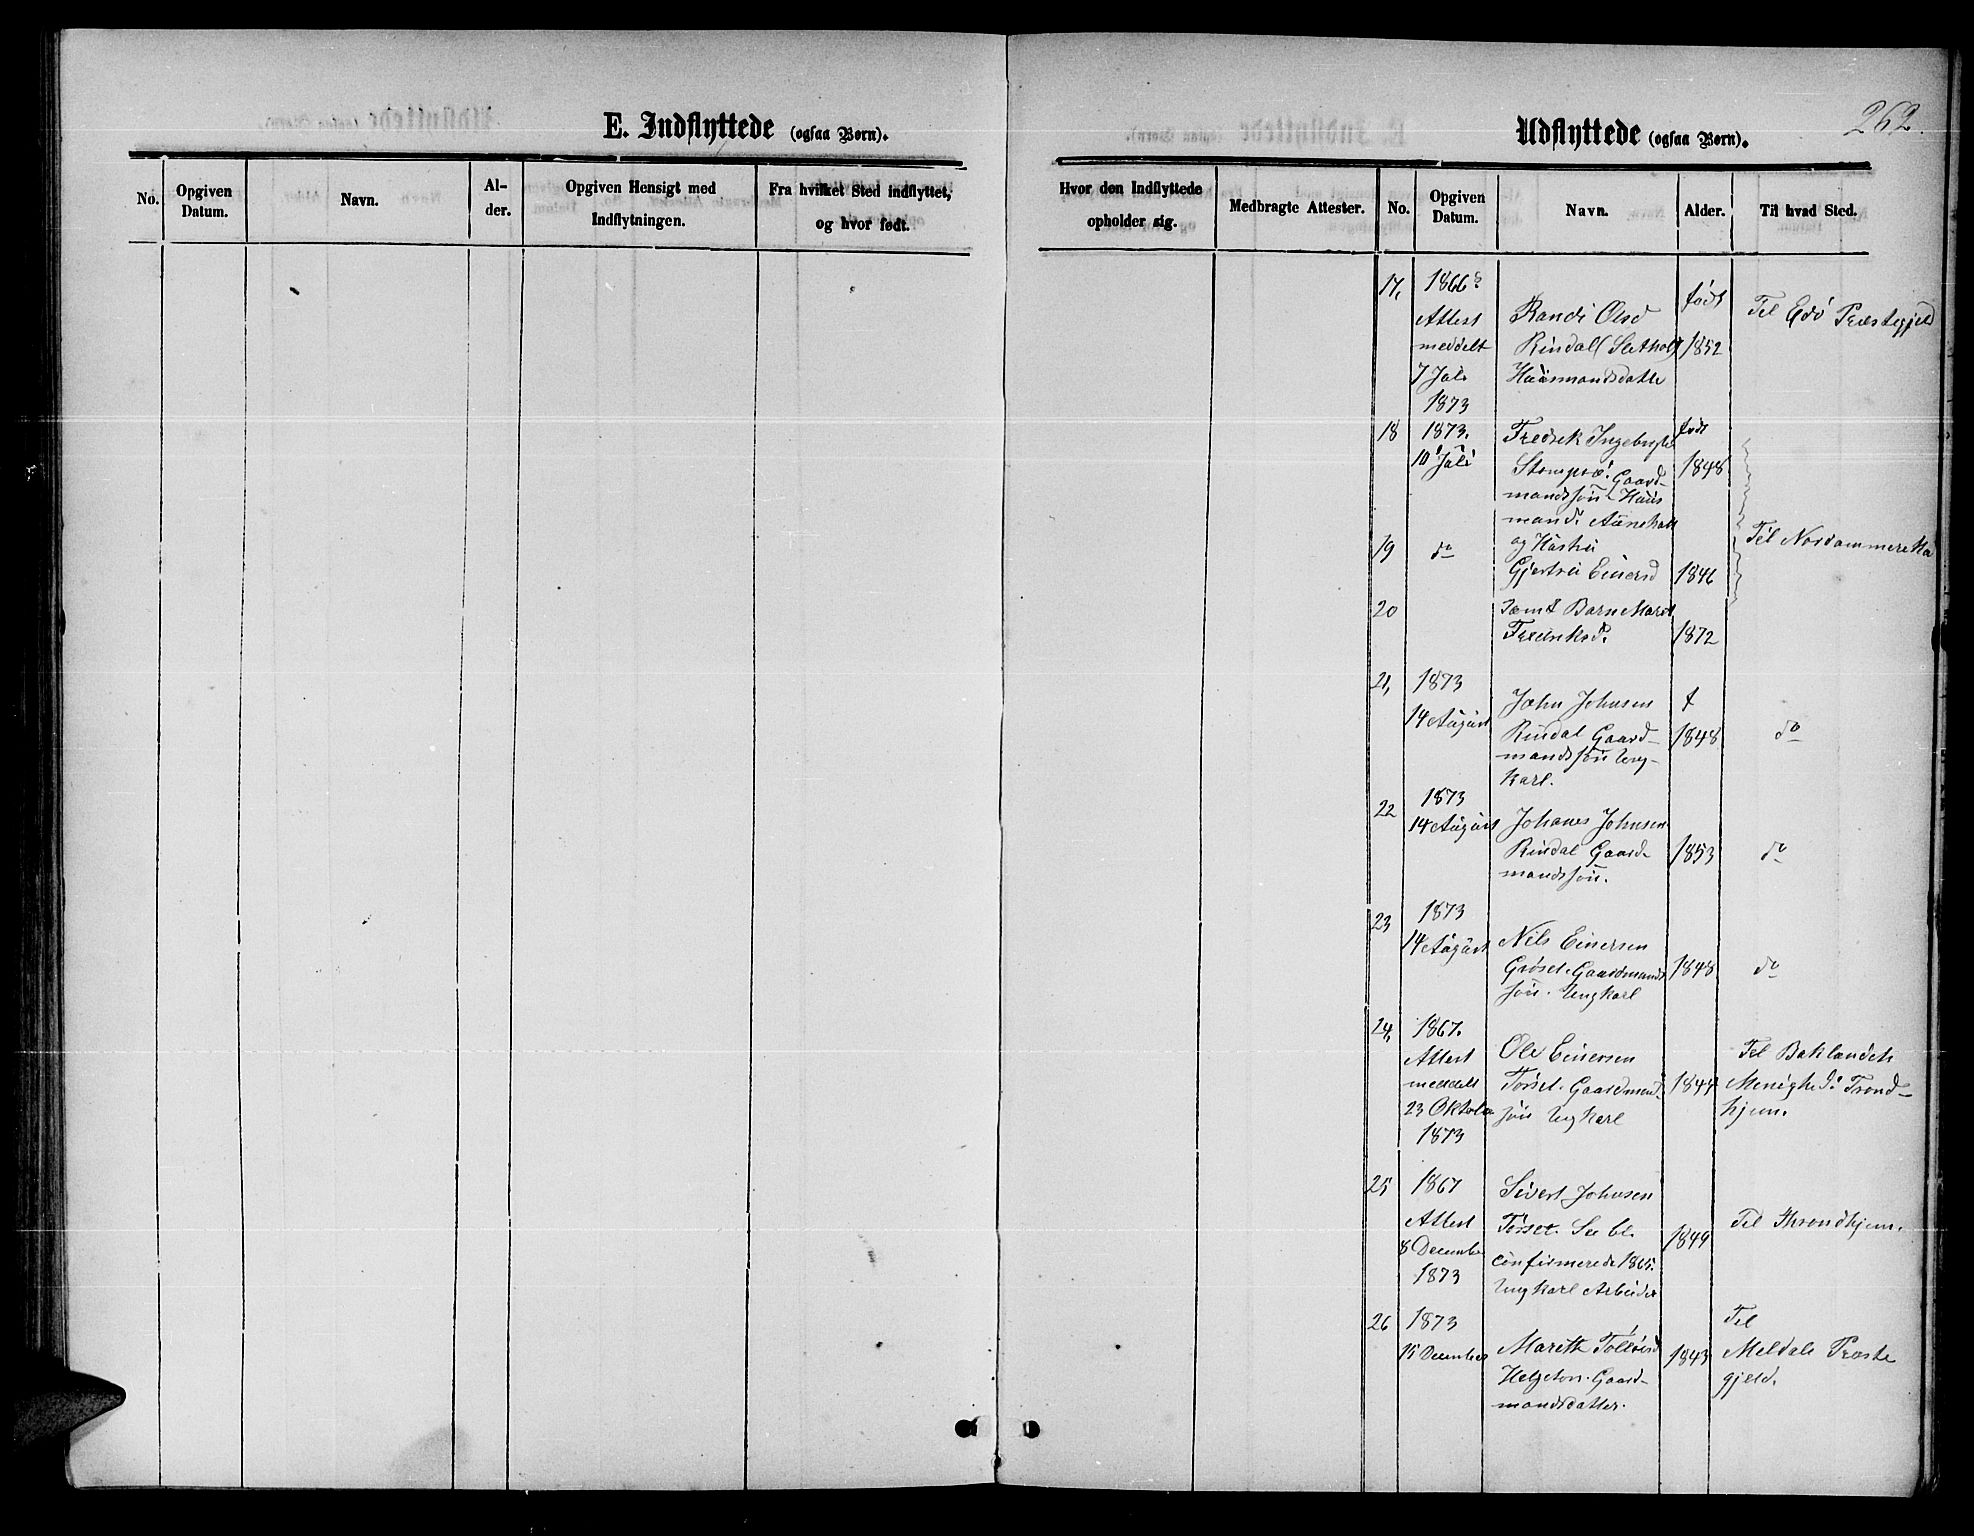 E. Indflyttede (ogsaa Børn).
No.
Opgiven Datum.
Navn.
Al-
der.
Opgiven Hensigt med
Indflytningen.
Fra hvilket Sted indflyttet,
og hvor født.
Udflyttede (ogsaa Børn).
262.
Hvor den Indflyttede
opholder sig.
Medbragte Attester.
No.
Opgiven
Datum.
Navn.
Alder.
Til hvad Sted.
17,
1866
Attest
meddelt
7 Juli
1873
Randi Olsd
Rindal
Huusmandsdatte
født
1852
Til Edø Præstegjeld
18
1873.
10 Juli
Fredrik
Gaard-
mandssøn Huus
mand.
født
1848
19
do
og Hustru
Gjertru Einersd
1846
Til Nordammerika
20
samt Barn Marit
1872
21,
1873
14 August
John Johnsen
Rindal Gaard-
mandssøn Ung-
karl.
f
1848
do
22
1873
14 August
Johanes Johnsen
Rindal Gaard-
mandssøn.
1853
do
23
1873
14 August
Nils Einersen
Grøset. Gaardmands
søn. Ungkarl
1848
do
24,
1867.
Attest
meddelt
23 Oktober
1873
Ole Einersen
Torset. Gaardmand
søn Ungkarl
Til Baklandets
Menighed i Trond-
hjem.
25
1867
Attest
8 December
1873
Sivert Johnsen
Torset.
confirmerede 1865.
Ungkarl Arbeider
1849
Til Throndhjem.
26
1873
15 December
Mareth
Helgeton. Gaard-
mandsdatter.
1843
Til
Meldals Præste
gjeld.